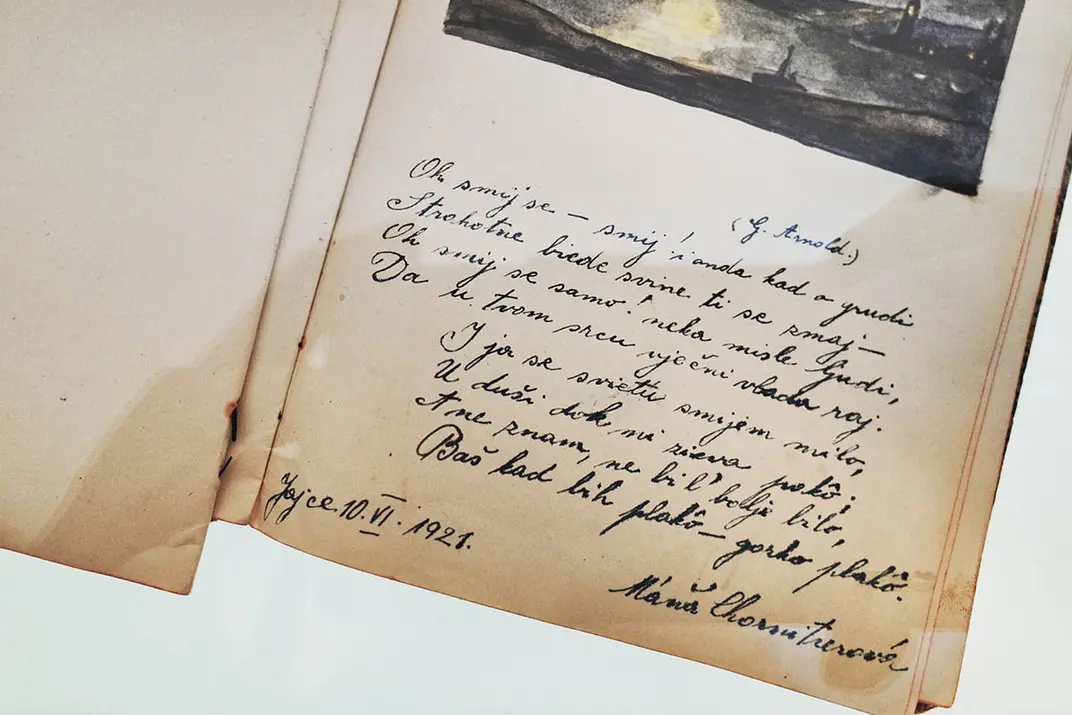 Oh smij se – smij! i onda kad o grudi
(G. Arnold.)
Strahotne biede svine ti se zmaj –
Oh smij se samo! neka misle ljudi,
Da u tvom srcu vječni vlada raj.
I ja se svietu smijem milo,
U duši dok mi zieva pakô;
A ne znam, ne bil' bolje bilo,
Baš kad bih plakô – gorko plakô.
Jajce 10. VI. 1921.
Máňa